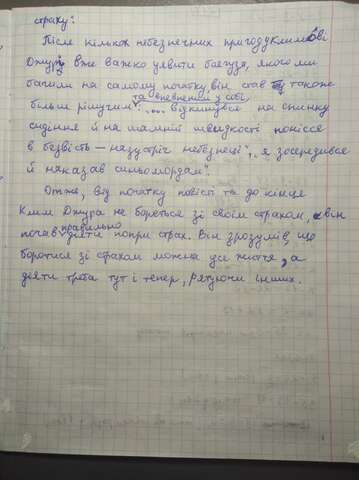 страху:
Після кількох небезпечних пригод у Климові
Джурі вже важко уявити боягуза, якого ми
бачили на самому початку, він став також
більш рішучим та впевненим у собі: „... відкинувся на спинку
сидіння й на шаленій швидкості понісся
в безвість — назустріч небезпеці", „я зосередився
й наказав синьомордам".
Отже, від початку повісті та до кінця
Клим Джура не бореться зі своїм страхом, а він
почав правильно діяти попри страх. Він зрозумів, що
боротися зі страхом можна усе життя, а
діяти треба тут і тепер, рятуючи інших.